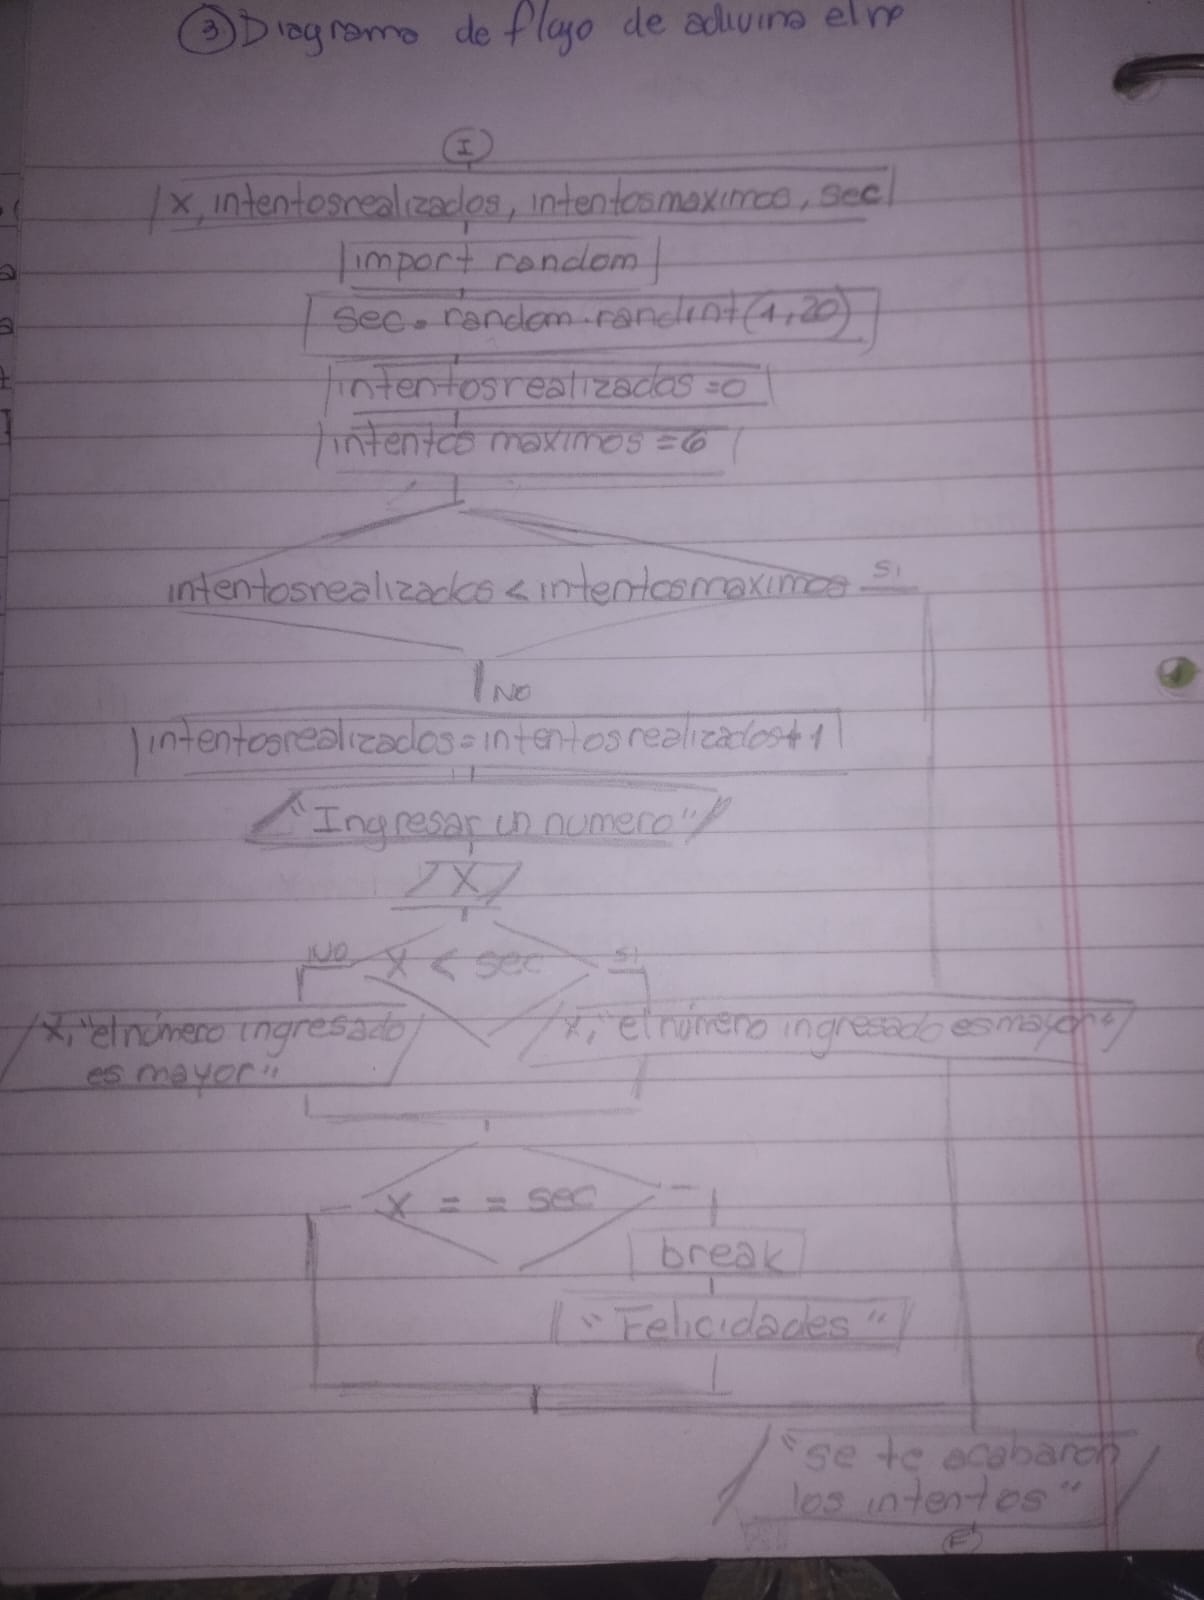 ③ Diagrama de flujo de adivina el nº
I
x, intentosrealizados, intentosmaximos, sec
import random
sec = random.randint(1,20)
intentosrealizados =0
intentos maximos =6
intentosrealizados < intentosmaximos SI
NO
intentosrealizados = intentosrealizados+1
"Ingresar un numero"
X
NO x < sec SI
x, "el número ingresado
es mayor"
x, "el número ingresado es mayor"
x = = sec
break
"Felicidades"
"se te acabaron
los intentos"
F